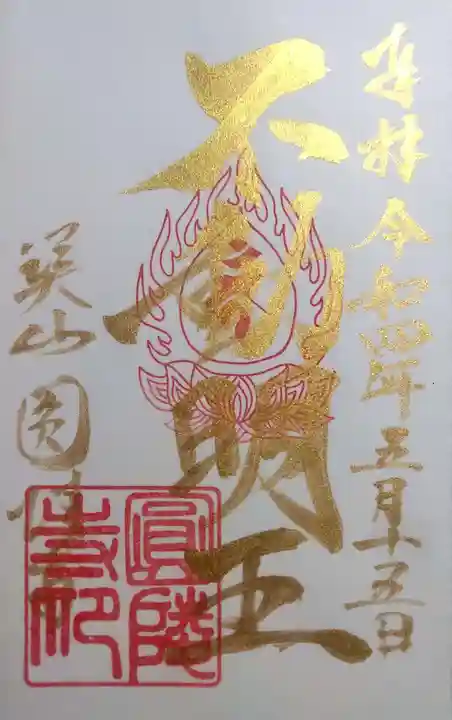 奉拝 令和四年五月十五日
不動明王
山 圓
圓
寺印